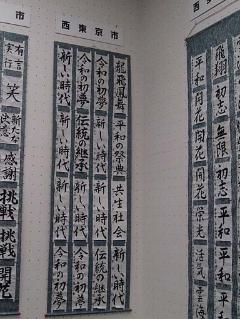 市
飛翔
初志
無限
初志
平和
平和
平和
平和
開花
開花
開花
栄光
活気
雲海
西東京市
龍飛鳳舞
平和の祭典
共生社会
新しい時代
令和の初夢
新しい時代
新しい時代
伝統の継承
令和の初夢
伝統の継承
新しい時代
令和の初夢
新しい時代
新しい時代
新しい時代
令和の初夢
市
有言実行
笑
新たな決意
感謝
挑戦
挑戦
開花